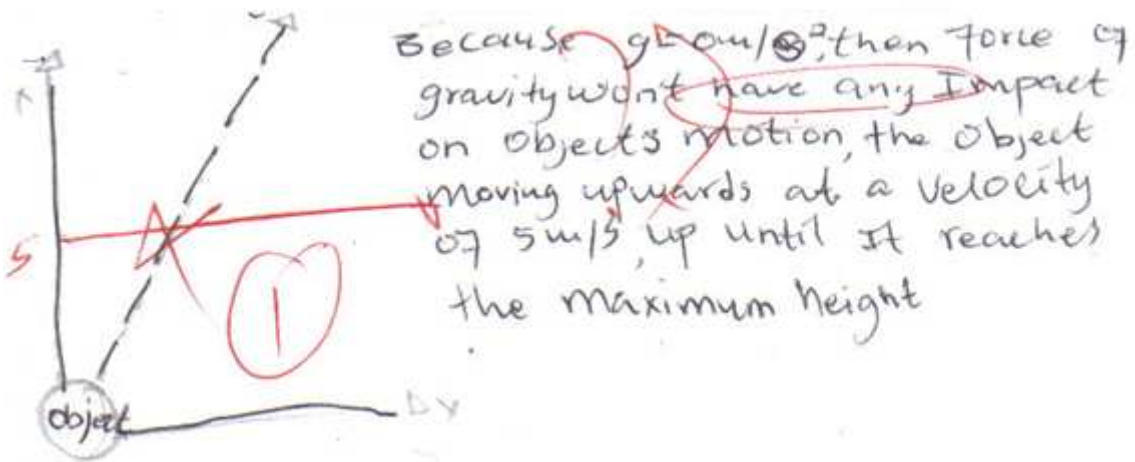 Because g=0m/s², then force of
gravity won't have any Impact
on objects motion, the object
moving upwards at a velocity
of 5m/s, up until It reaches
the maximum height
5
1
object
Δx